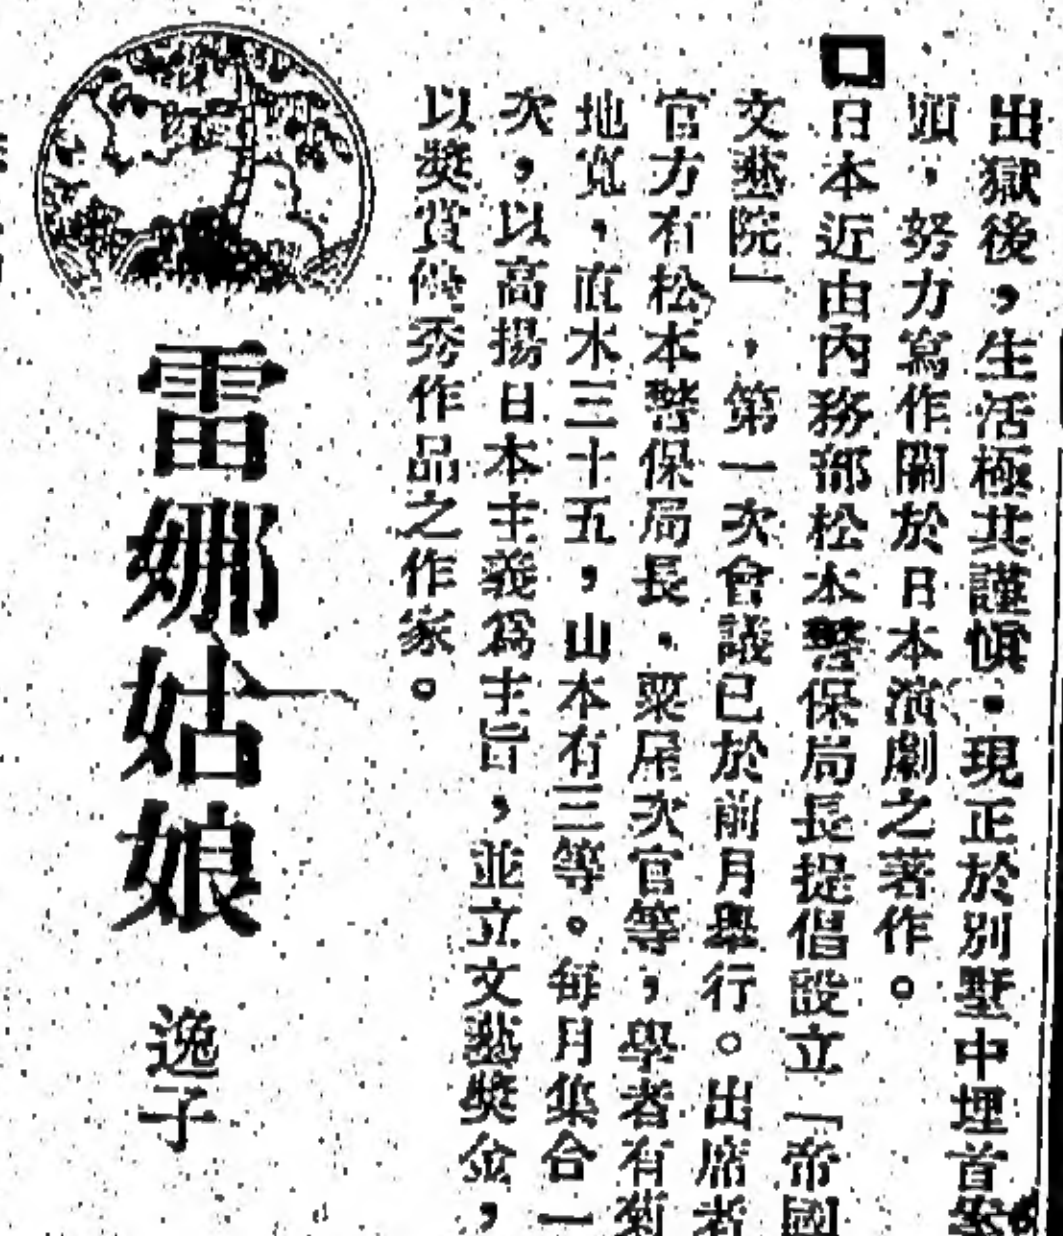 出獄後，生活極其謹慎．現正於別墅中埋首案
頭，努力寫作關於日本演劇之著作。
日本近由內務部松本警保局長提倡設立「帝國
文藝院」，第一次會議已於前月舉行。出席者
官方有松本警保局長．粟屋次官等，學者有菊
地寬，直木三十五，山本有三等。每月集合一
次，以高揚日本主義爲主旨，並立文藝獎金，
以獎賞優秀作品之作家。
雷娜姑娘
逸子